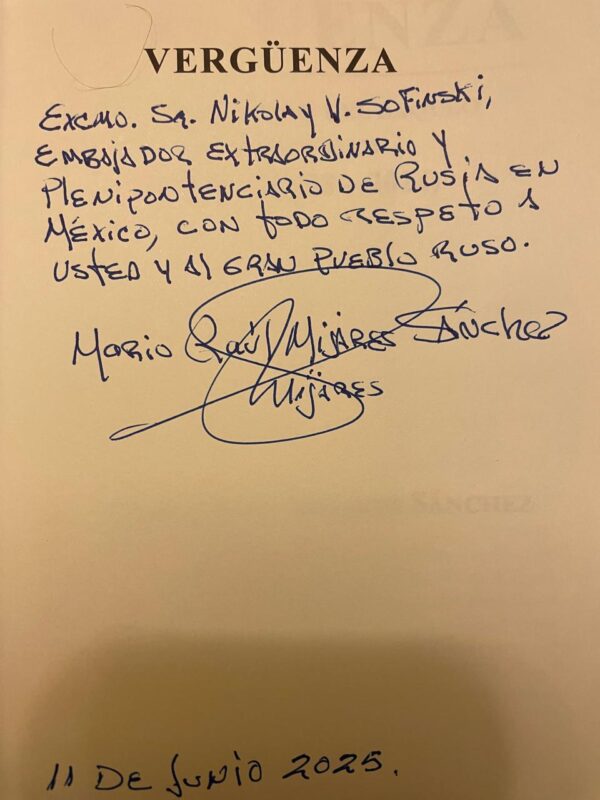 VERGÜENZA
Excmo. Sr. Nikolay V. Sofinski,
Embajador Extraordinario y
Plenipontenciario de Rusia en
México, con todo respeto a
usted y al gran pueblo ruso.
Mario Raúl Mijáres Sánchez
Mijáres
SÁNCHEZ
11 de Junio 2025.